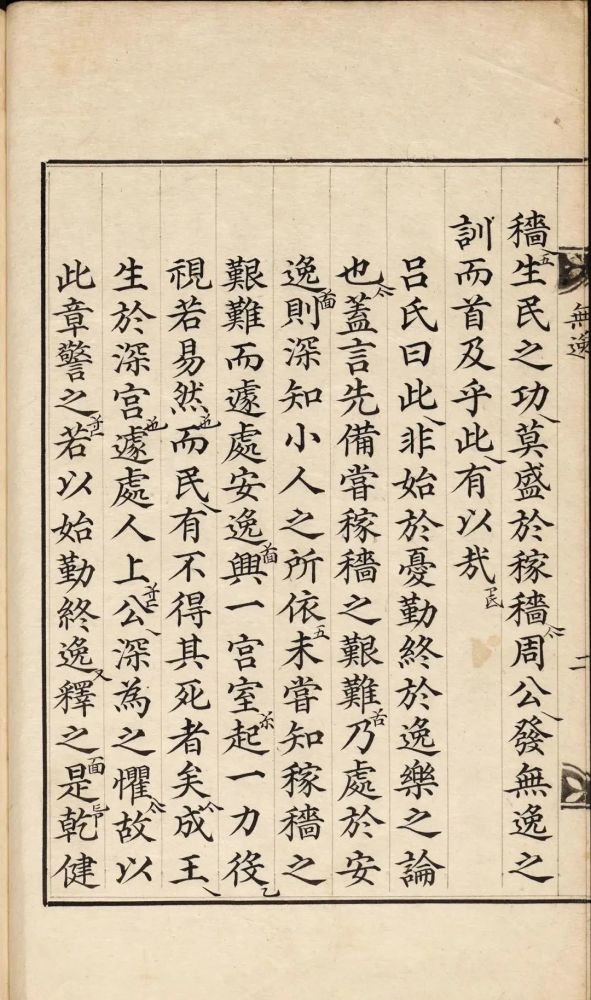 無逸 二
穡生民之功莫盛於稼穡周公發無逸之
訓而首及乎此有以㢤
呂氏曰此非始於憂勤終於逸樂之論
也蓋言先備嘗稼穡之艱難乃處於安
逸則深知小人之所依未嘗知稼穡之
艱難而遽處安逸興一宮室起一力役
視若易然而民有不得其死者矣成王
生於深宮遽處人上公深為之懼故以
此章警之若以始勤終逸釋之是乾健